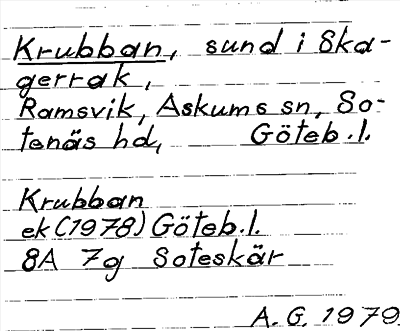 Krubban, sund i Ska-
gerrak,
Ramsvik, Askums sn, So-
tenäs hd, Göteb.l.
Krubban
ek (1978) Göteb.l.
8A 7g Soteskär
A.G. 1979.